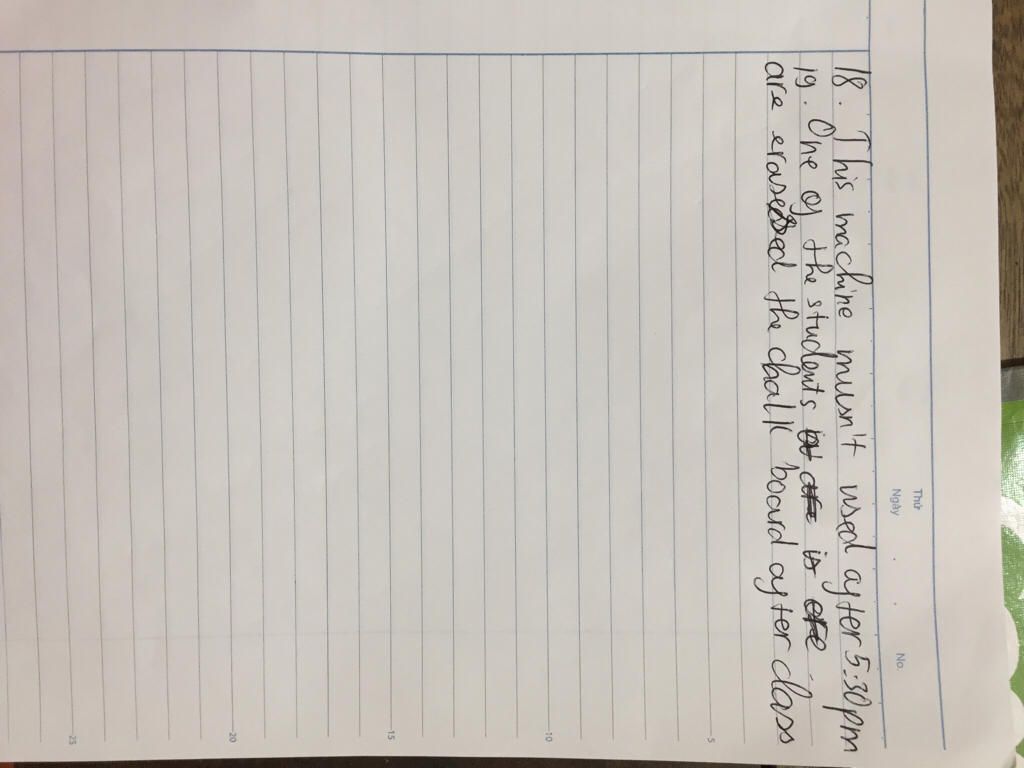 Thứ
Ngày . . No.
18. This machine musn't used after 5:30pm
19. One of the students is are is are -
are erased the chalk board after class
5
10
15
20
25